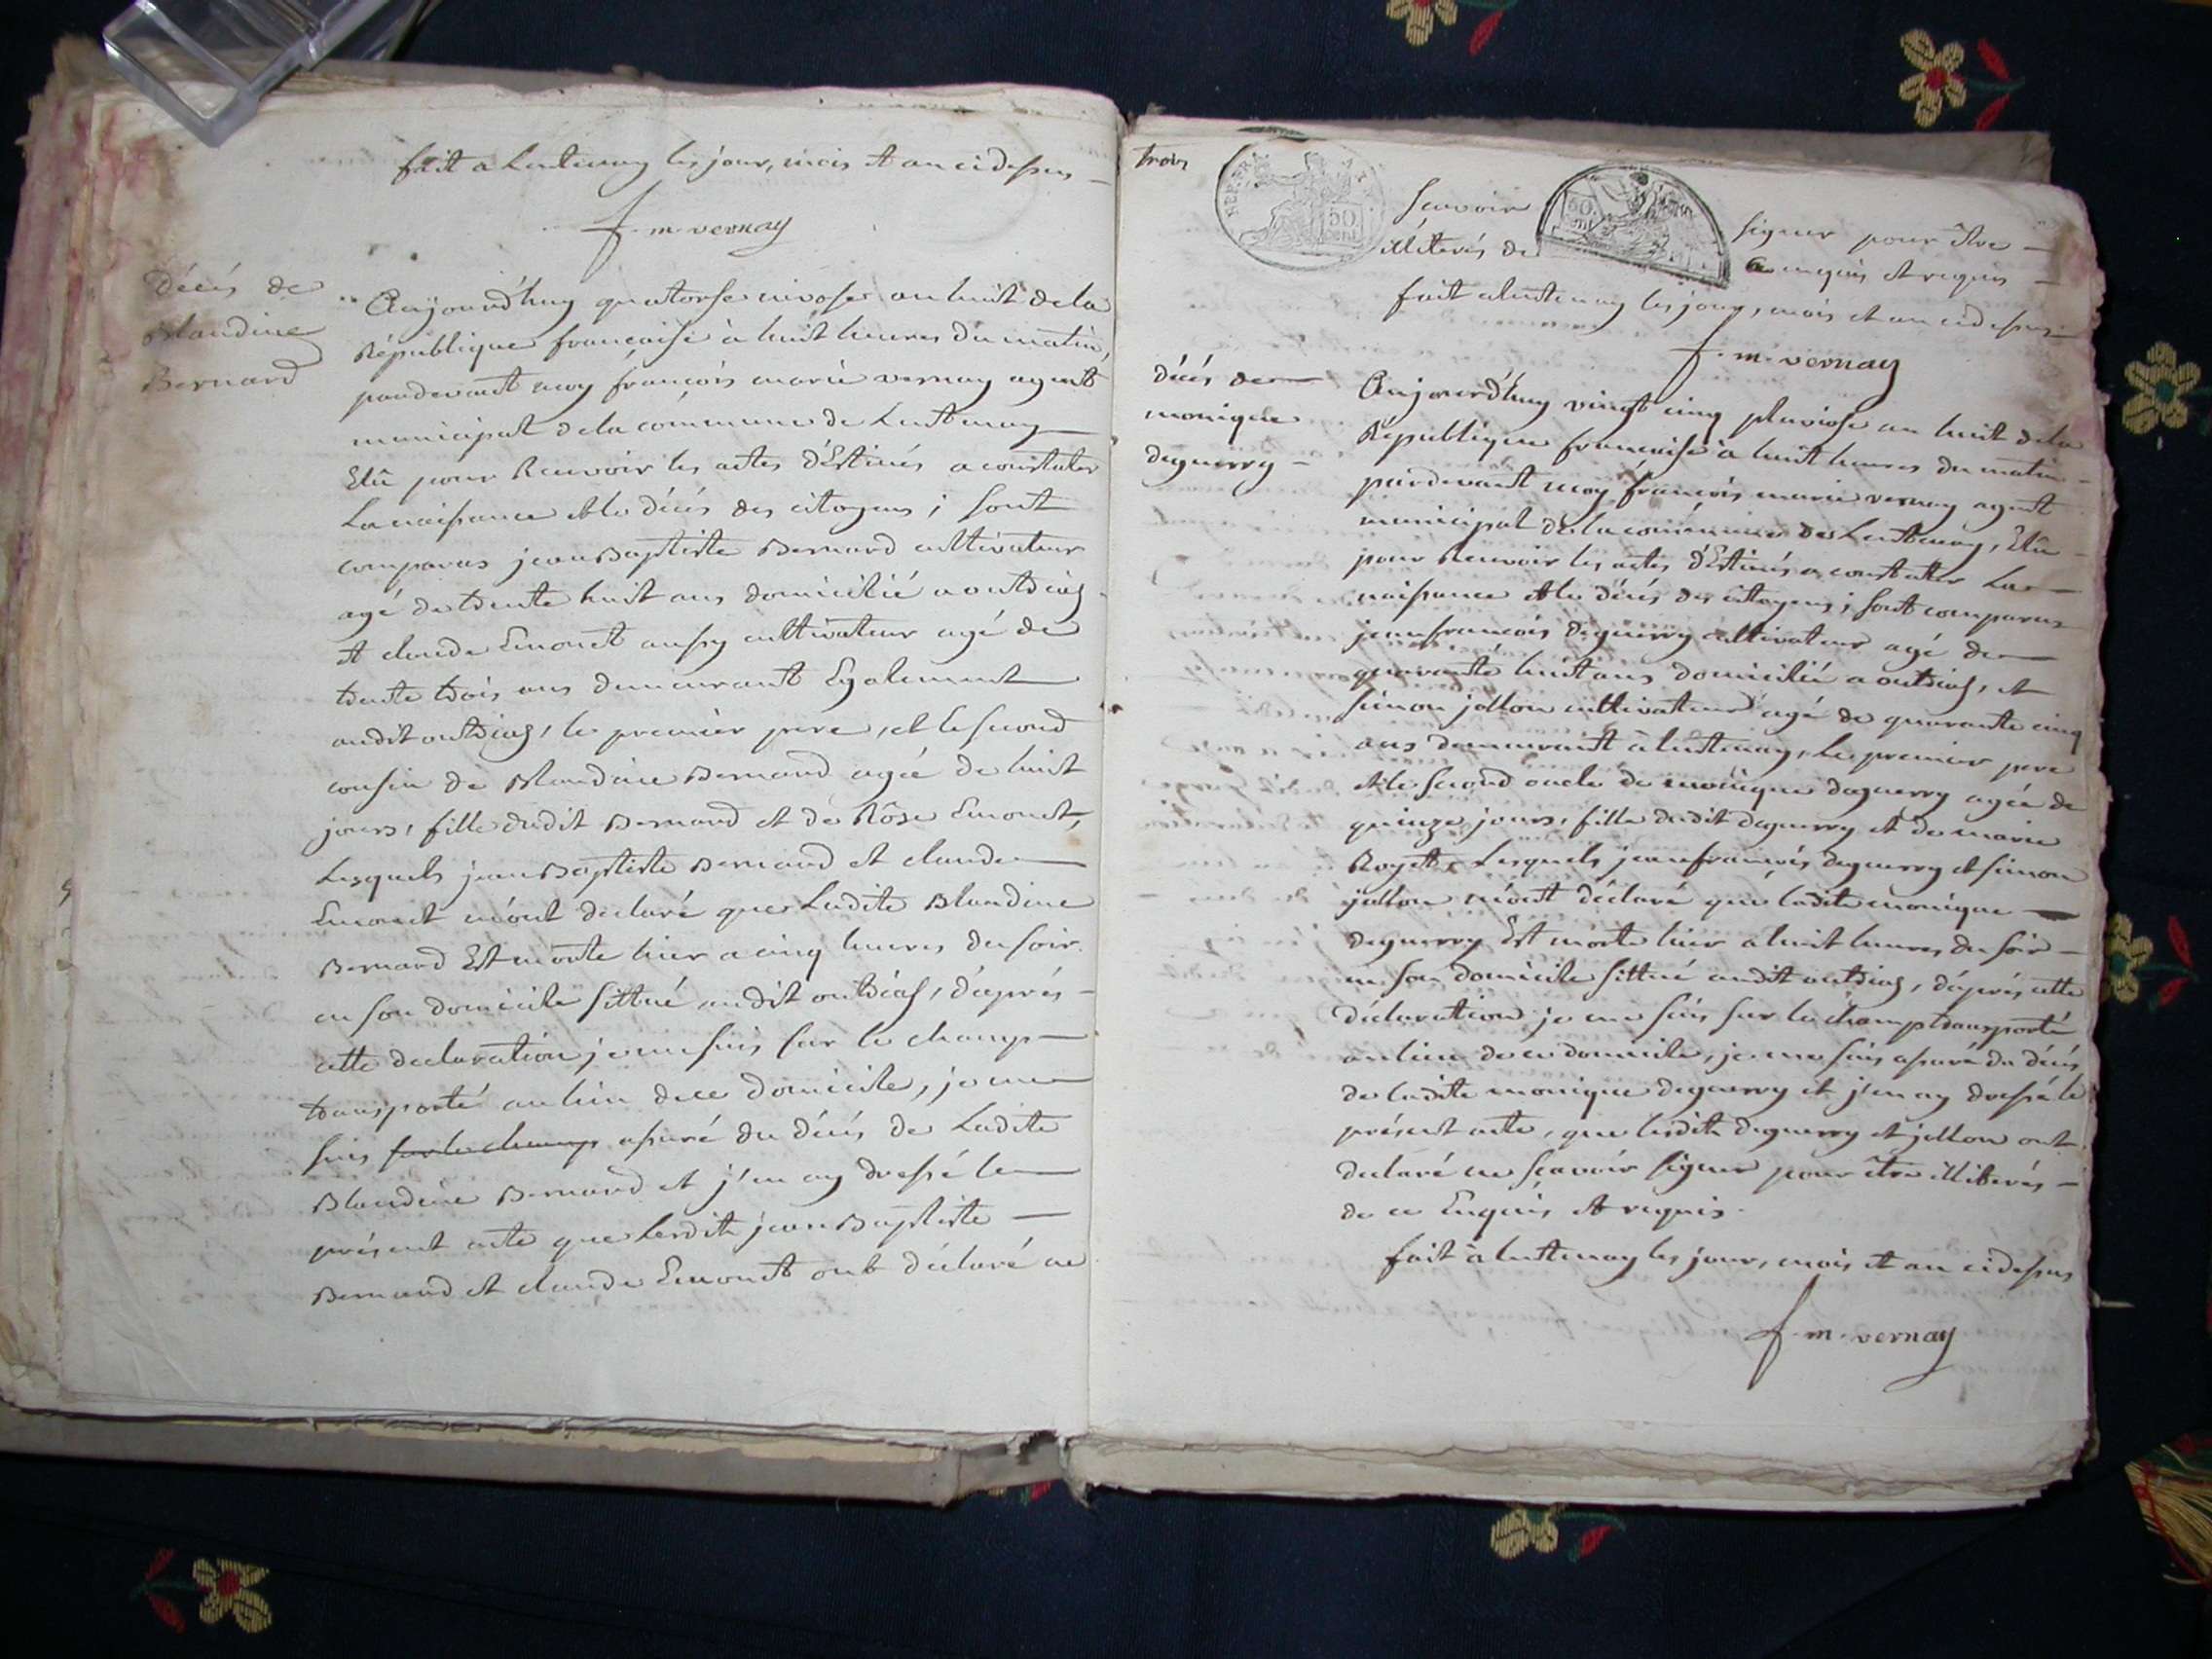 fait a Lentenay les jour, mois et an cidessus
f. m. vernay
décés de
Blandine
Bernard
Aujourd'huy quatorse nivose an huit de la
République française à huit heures du matin,
pardevant moy françois marie vernay agent
municipal de la commune de Lentenay
Elû pour Recevoir les actes d'Estinés a constater
La naissance et le décés des citoyens ; sont
comparus jean Baptiste Bernard cultivateur
agé de trente huit ans domicilié a outriaz
et claude Emonet aussy cultivateur agé de
trente trois ans demeurant Egalement
audit outriaz, le premier pere, et le second
cousin de Blandine Bernard agée de huit
jours, fille dudit Bernard et de Rôse Emonet,
Lesquels jean Baptiste Bernard et claude
Emonet m'ont declaré que Ladite Blandine
Bernard Est morte hier a cinq heures du soir
en son domicile sittué audit outriaz, d'aprés
cette declaration je me suis sur le champ
transporté au lieu de ce domicile, je me
suis sur le champ assuré du décés de Ladite
Blandine Bernard et j'en ay dressé le
présent acte que lesdits jean Baptiste
Bernard et claude Emonet ont déclaré ne
trois
REP. FRA.
50 cent
50 cent
sçavoir signer pour être
illiterés de ce enquis et requis
fait a lentenay les jour, mois et an cidessus
f. m. vernay
décés de
monique
deguerry
Aujourd'huy vingt cinq pluviose an huit de la
République française à huit heures du matin
pardevant moy françois marie vernay agent
municipal de la commune de Lentenay, Elû
pour Recevoir les actes d'Estinés a constatter La
naissance et le décés des citoyens ; sont comparus
jean françois deguerry cultivateur agé de
quarante huit ans domicilié a outriaz, et
simon jollon cultivateur agé de quarante cinq
ans demeurant à lentenay, Le premier pere
et le second oncle de monique deguerry agée de
quinze jours, fille dudit deguerry et de marie
Royet, Lesquels jean françois deguerry et simon
jollon m'ont déclaré que ladite monique
deguerry Est morte hier a huit heures du soir
en son domicile sittué audit outriaz, d'aprés cette
déclaration je me suis sur le champ transporté
au lieu de ce domicile, je me suis assuré du décés
de ladite monique deguerry et j'en ay dressé le
présent acte, que lesdits deguerry et jollon ont
declaré ne sçavoir signer pour être illiterés
de ce Enquis et requis.
fait à lentenay les jour, mois et an cidessus
f. m. vernay